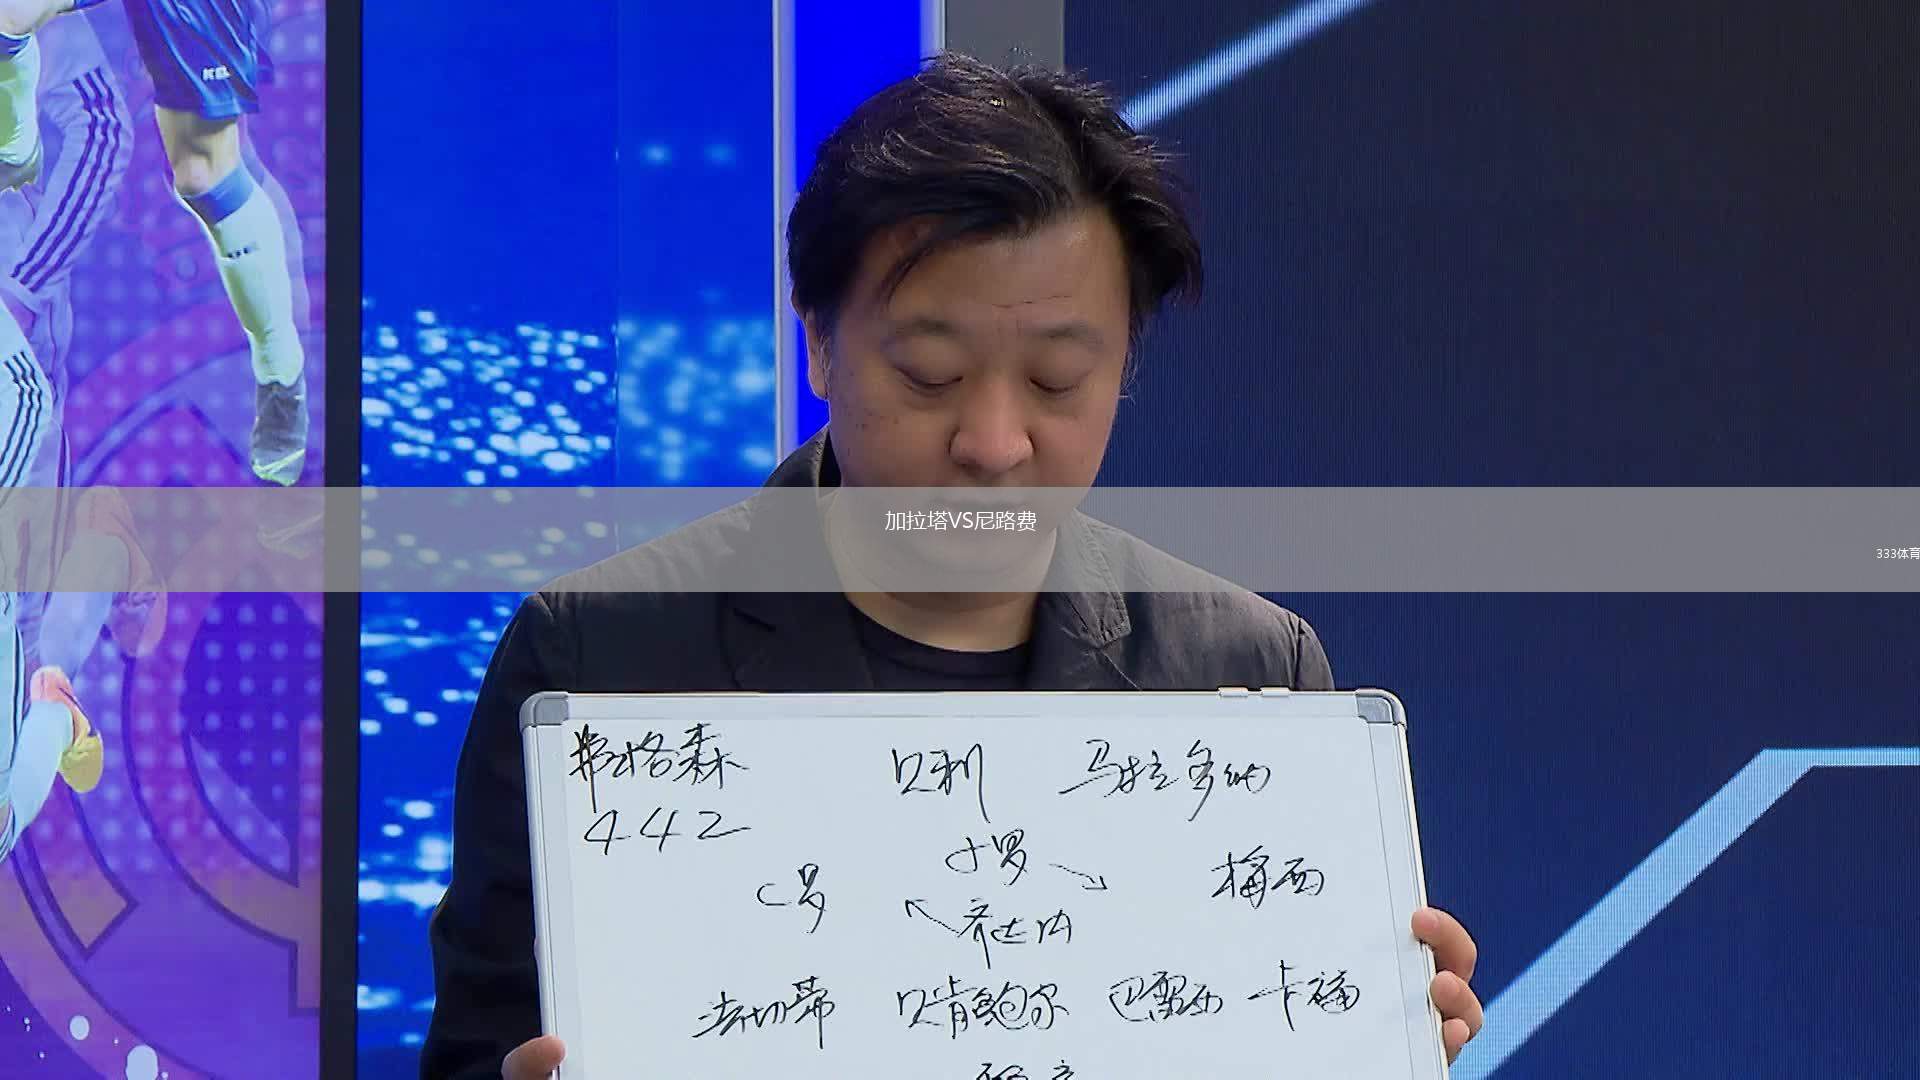 加拉塔VS尼路费
333体育
弗格森 贝利 马拉多纳
442
小罗
C罗 梅西
齐达内
法切蒂 贝肯鲍尔 巴雷西 卡福